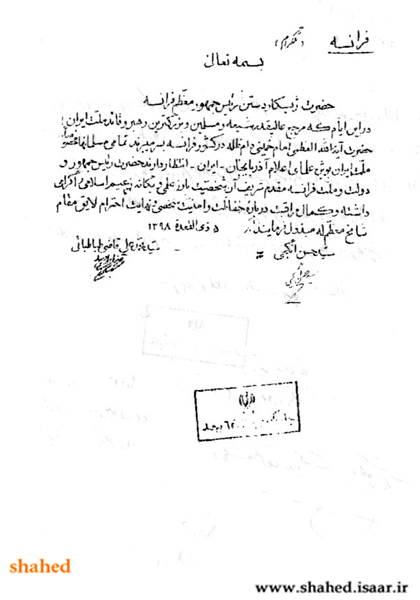 فرانسه (تلگرام)
بسمه تعالی
حضرت ژیسکاردستن رئیس جمهور معظم فرانسه
در این ایام که مرجع عالیقدر شیعه و مسلمین و بزرگترین رهبر و قائد ملت ایران
حضرت آیة الله العظمی امام خمینی مدظله در کشور فرانسه بسر میبرند تمامی مسلمانها خصوصا
ملت ایران بویژه علمای اعلام آذربایجان - ایران - انتظار دارند حضرت رئیس جمهور و
دولت و ملت فرانسه مقدم شریف آن شخصیت بارز علمی یگانه زعیم اسلامی را گرامی
داشته و کمال مراقبت درباره حفاظت و امنیت شخصی نهایت احترام لایق مقام
شامخ معظم له مبذول فرمایند. ۵ ذی القعدة ۱۳۹۸
سید حسن انگجی - سید محمد علی قاضی طباطبائی
shahed
www.shahed.isaar.ir